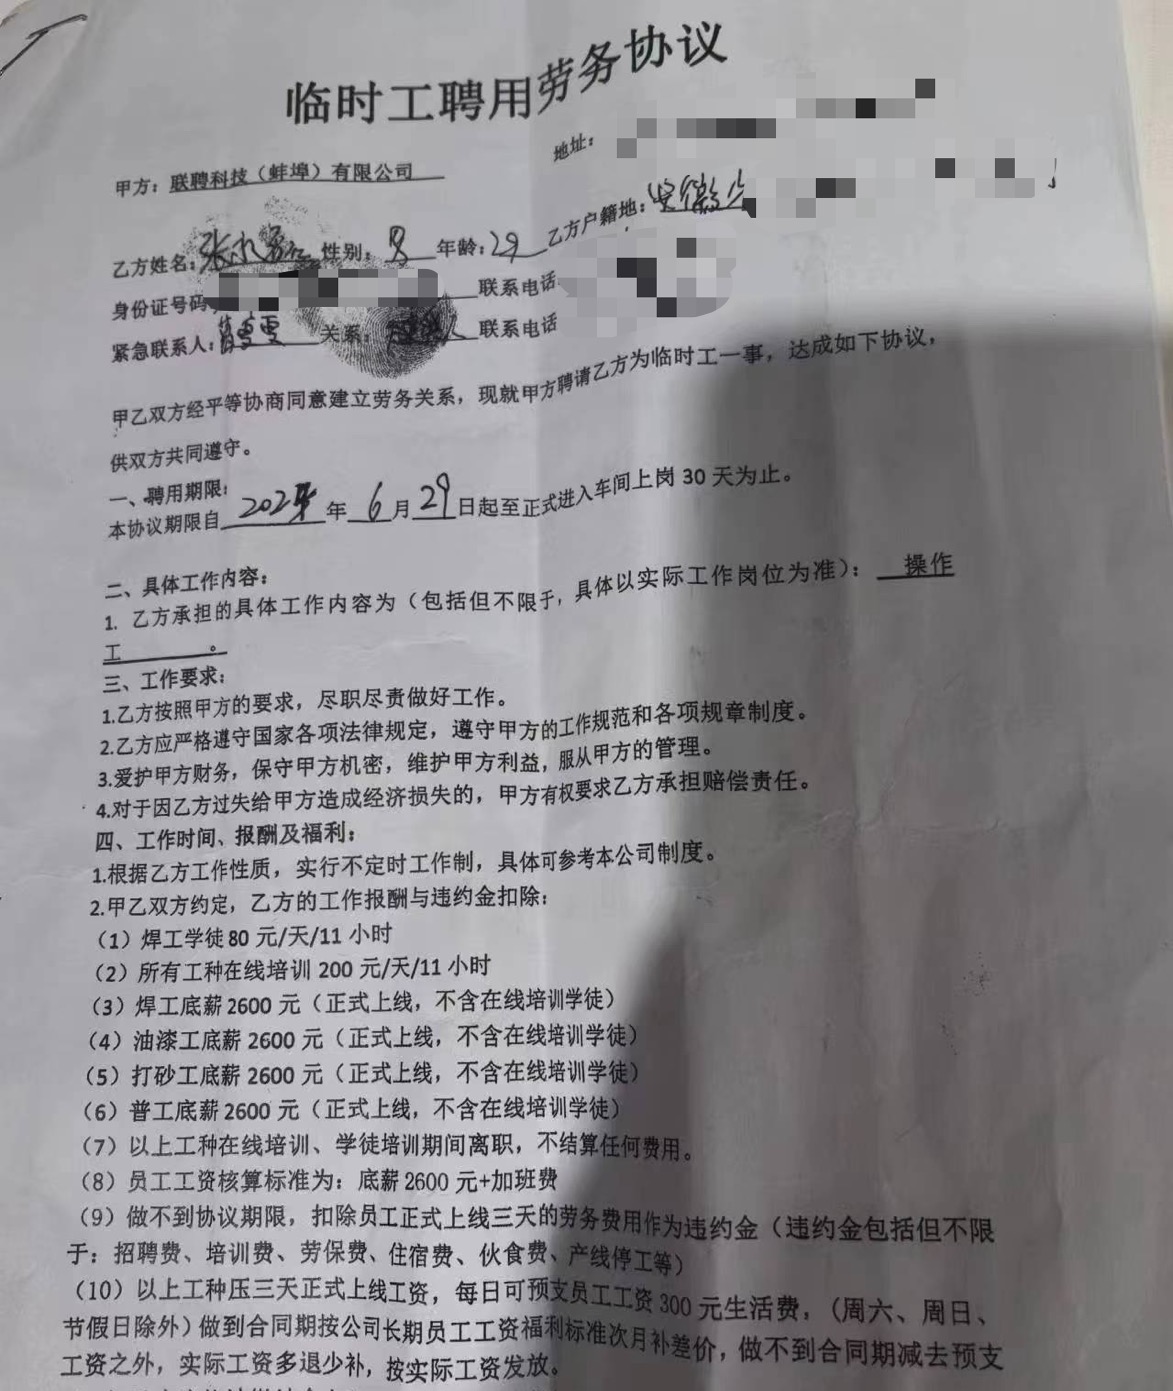 临时工聘用劳务协议
地址:
甲方: 联聘科技（蚌埠）有限公司
乙方姓名: 张 性别: 男 年龄: 29 乙方户籍地: 安徽
身份证号码: 联系电话
紧急联系人: 关系: 联系电话
甲乙双方经平等协商同意建立劳务关系，现就甲方聘请乙方为临时工一事，达成如下协议，
供双方共同遵守。
一、聘用期限:
本协议期限自 年 6 月 29 日起至正式进入车间上岗 30 天为止。
二、具体工作内容:
1. 乙方承担的具体工作内容为（包括但不限于，具体以实际工作岗位为准）: 操作
工 。
三、工作要求:
1.乙方按照甲方的要求，尽职尽责做好工作。
2.乙方应严格遵守国家各项法律规定，遵守甲方的工作规范和各项规章制度。
3.爱护甲方财务，保守甲方机密，维护甲方利益，服从甲方的管理。
4.对于因乙方过失给甲方造成经济损失的，甲方有权要求乙方承担赔偿责任。
四、工作时间、报酬及福利:
1.根据乙方工作性质，实行不定时工作制，具体可参考本公司制度。
2.甲乙双方约定，乙方的工作报酬与违约金扣除:
（1）焊工学徒 80 元/天/11 小时
（2）所有工种在线培训 200 元/天/11 小时
（3）焊工底薪 2600 元（正式上线，不含在线培训学徒）
（4）油漆工底薪 2600 元（正式上线，不含在线培训学徒）
（5）打砂工底薪 2600 元（正式上线，不含在线培训学徒）
（6）普工底薪 2600 元（正式上线，不含在线培训学徒）
（7）以上工种在线培训、学徒培训期间离职，不结算任何费用。
（8）员工工资核算标准为: 底薪 2600 元+加班费
（9）做不到协议期限，扣除员工正式上线三天的劳务费用作为违约金（违约金包括但不限
于: 招聘费、培训费、劳保费、住宿费、伙食费、产线停工等）
（10）以上工种压三天正式上线工资，每日可预支员工工资 300 元生活费，(周六、周日、
节假日除外）做到合同期按公司长期员工工资福利标准次月补差价，做不到合同期减去预支
工资之外，实际工资多退少补，按实际工资发放。